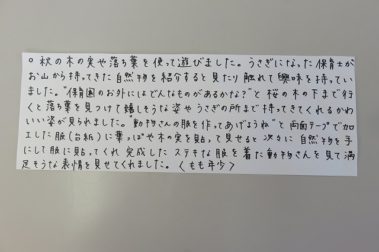 ○ 秋の木の実や落ち葉を使って遊びました。うさぎになった保育士が
お山から持ってきた自然物を紹介すると見たり触れて興味を持ってい
ました。"保育園のお外にはどんなものがあるかな?"と桜の木の下まで行
くと落ち葉を見つけて嬉しそうな姿やうさぎの所まで持ってきてくれるかわ
いい姿が見られました。"動物さんの服を作ってあげようね"と両面テープで加
工した服(台紙)に葉っぱや木の実を貼って見せると次々に自然物を手
にして服に貼ってくれ完成したステキな服を着た動物さんを見て満
足そうな表情を見せてくれました。〈もも年少〉